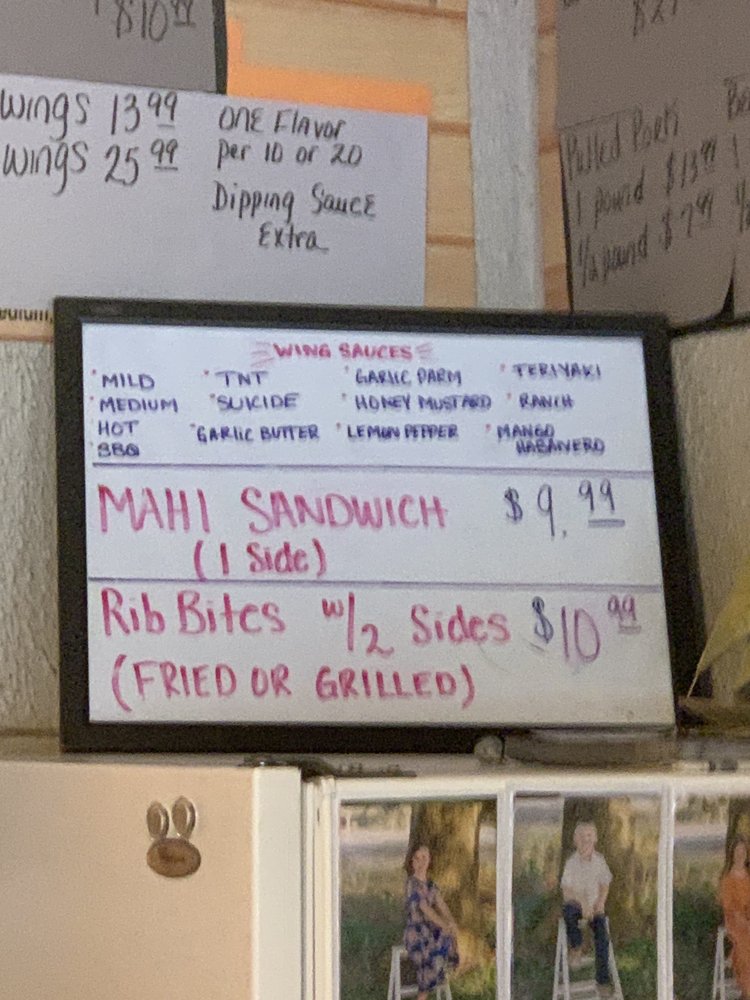 $10.99
wings 13 99
wings 25 99
ONE Flavor
per 10 or 20
Dipping Sauce
Extra
Pulled Pork
1 pound $13 99
1/2 pound $7 99
WING SAUCES
MILD TNT GARLIC PARM TERIYAKI
MEDIUM SUICIDE HONEY MUSTARD RANCH
HOT GARLIC BUTTER LEMON PEPPER MANGO
BBQ HABANERO
MAHI SANDWICH $9.99
(1 Side)
Rib Bites w/2 Sides $10 99
(FRIED OR GRILLED)